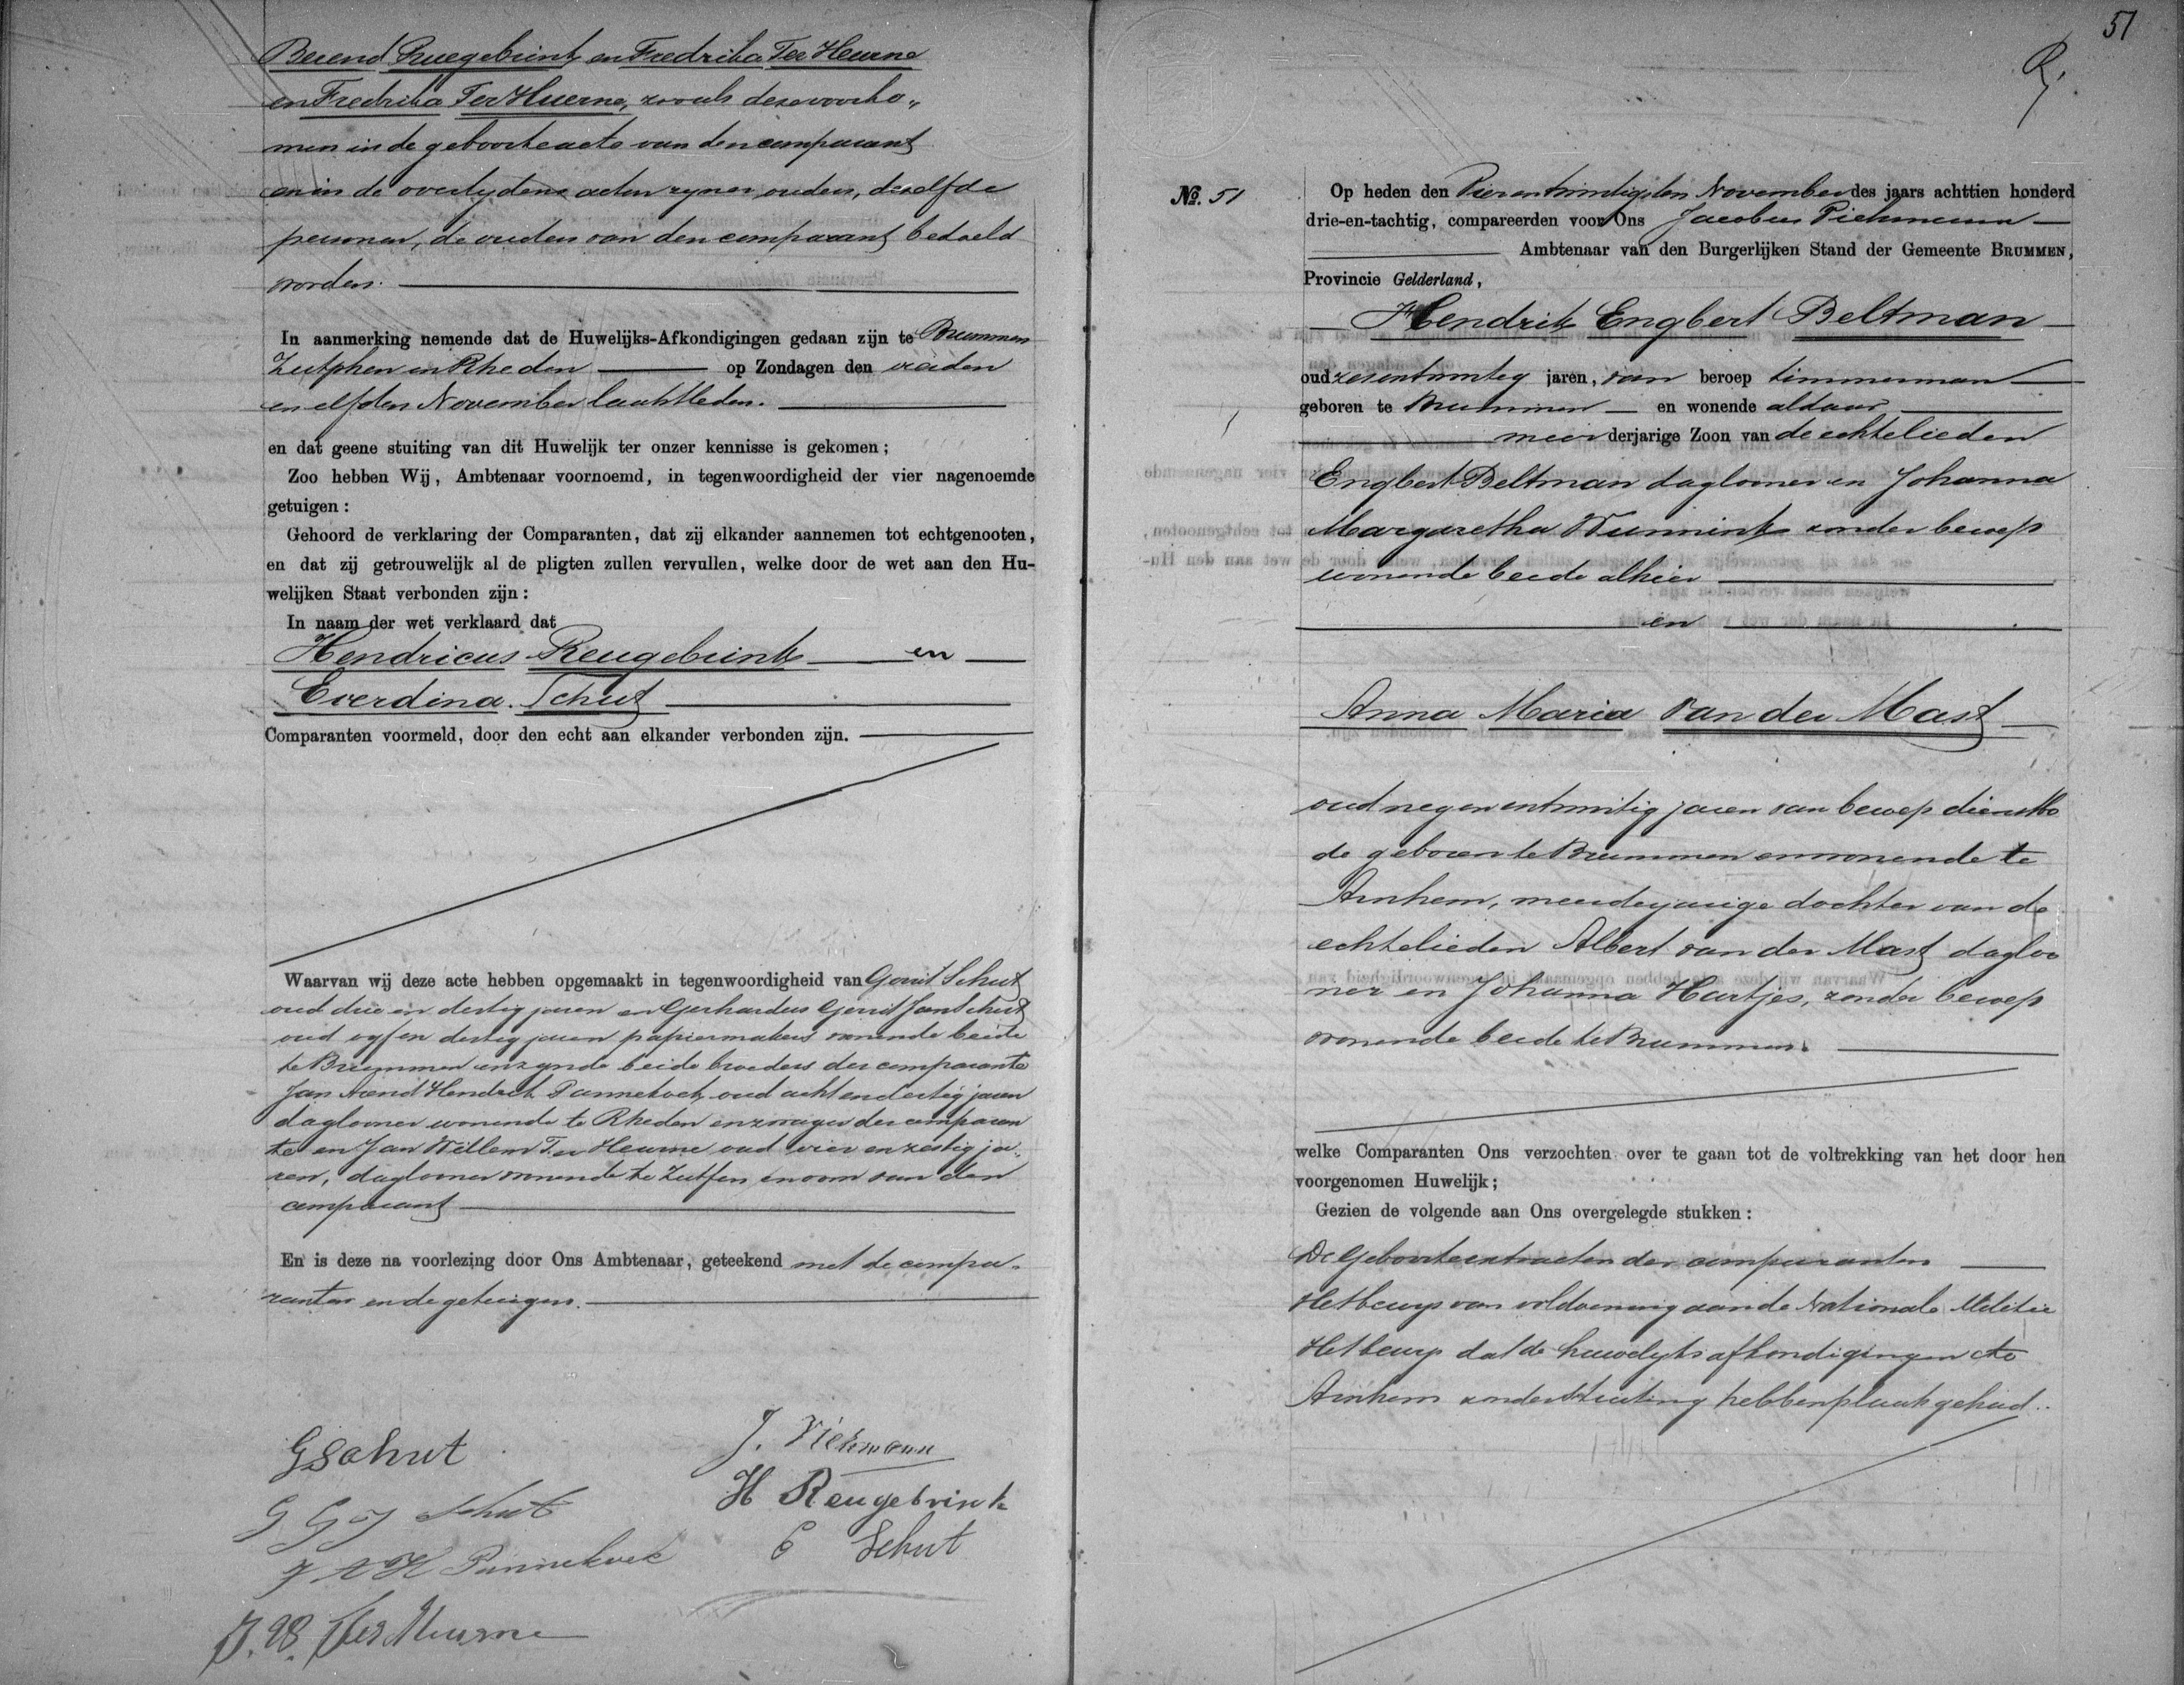 Berend Ruegebrink en Fredrika Ter Heurne
en Fredrika Ter Huerne, zooals deze voorko„
men in de geboorteacte van den comparant
en in de overlydens acten zyner ouders, dezelfde
personen, de ouders van den comparant bedoeld
worden.
In aanmerking nemende dat de Huwelijks-Afkondigingen gedaan zijn te Brummen
Zutphen en Rheden op Zondagen den vierden
en elfden November laatstleden.
en dat geene stuiting van dit Huwelijk ter onzer kennisse is gekomen;
Zoo hebben Wij, Ambtenaar voornoemd, in tegenwoordigheid der vier nagenoemde
getuigen:
Gehoord de verklaring der Comparanten, dat zij elkander aannemen tot echtgenooten,
en dat zij getrouwelijk al de pligten zullen vervullen, welke door de wet aan den Hu-
welijken Staat verbonden zijn:
In naam der wet verklaard dat
Hendricus Reugebrink en
Everdina Schut
Comparanten voormeld, door den echt aan elkander verbonden zijn.
Waarvan wij deze acte hebben opgemaakt in tegenwoordigheid van Gerrit Schut
oud drie en dertig jaren en Gerhardus Gerrit Jan Schut
oud vyf en dertig jaren papiermakers wonende beide
te Brummen en zynde beide broeders der comparante
Jan Arend Hendrik Pannekoek oud acht en dertig jaren
daglooner wonende te Rheden en zwager der comparan
te en Jan Willem Ter Heurne oud vier en zestig ja„
ren, daglooner wonende te Zutfen en oom van den
comparant
En is deze na voorlezing door Ons Ambtenaar, geteekend met de compa„
ranten en de getuigen.
J. Piekmann
GSchut
H Reugebrink
G G J Schut
E Schut
J A H Pannekoek
J. W. Ter Heurne
51
No. 51
Op heden den Vierentwintigsten November des jaars achttien honderd
drie-en-tachtig, compareerden voor Ons Jacobus Piekmann
Ambtenaar van den Burgerlijken Stand der Gemeente BRUMMEN,
Provincie Gelderland,
Hendrik Engbert Beltman
oud zesentwintig jaren, van beroep timmerman
geboren te Brummen en wonende aldaar
meerderjarige Zoon van de echtelieden
Engbert Beltman daglooner en Johanna
Margaretha Wunnink zonder beroep
wonende beide alhier
en
Anna Maria van der Mast
oud negenentwintig jaren van beroep dienstbo
de geboren te Brummen en wonende te
Arnhem, meerderjarige dochter van de
echtelieden Albert van der Mast dagloo
ner en Johanna Hartjes, zonder beroep
wonende beide te Brummen.
welke Comparanten Ons verzochten over te gaan tot de voltrekking van het door hen
voorgenomen Huwelijk;
Gezien de volgende aan Ons overgelegde stukken:
De Geboorteextracten der comparanten
Het bewys van voldoening aan de Nationale Militie
Het bewys dat de huwelyks afkondigingen te
Arnhem zonder stuiting hebben plaats gehad.